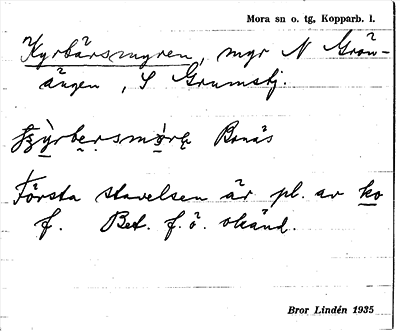 Mora sn o. tg, Kopparb. l.
Kyrbärsmyren, myr N Grön-
ängen, S Grumsbj.
Bonäs
Första stavelsen är pl. av ko
f. Bet. f. ö. okänd.
Bror Lindén 1935